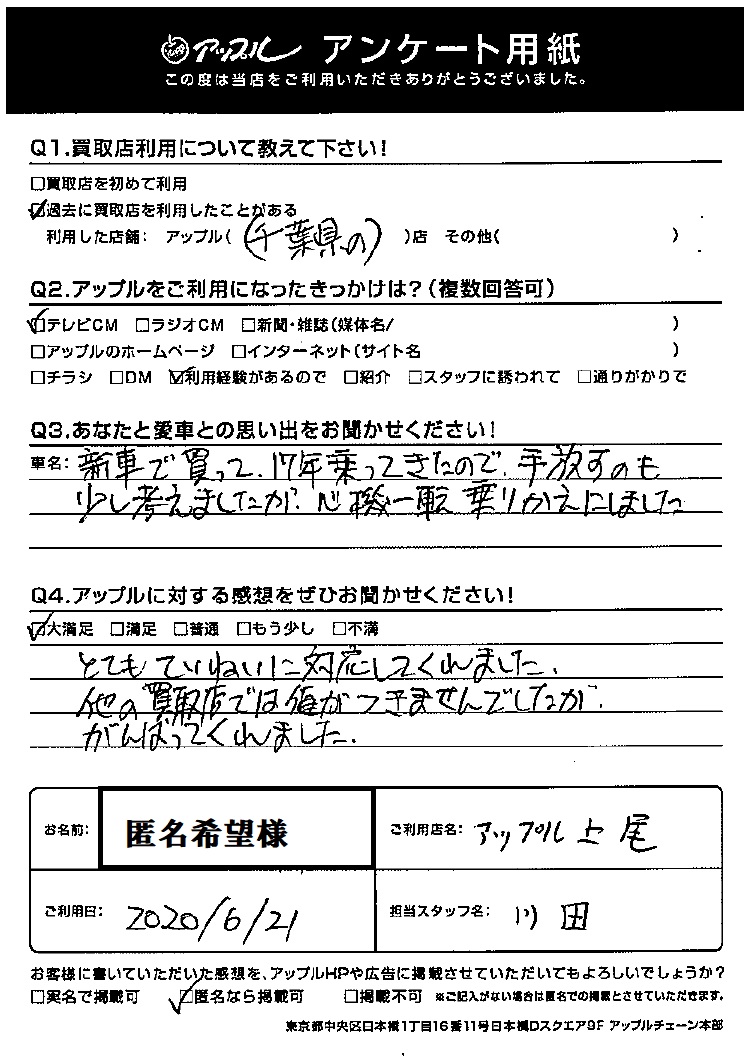 アップル アンケート用紙
この度は当店をご利用いただきありがとうございました。
Q1.買取店利用について教えて下さい!
□買取店を初めて利用
☑過去に買取店を利用したことがある
利用した店舗: アップル((千葉県の))店 その他( )
Q2.アップルをご利用になったきっかけは?(複数回答可)
☑テレビCM □ラジオCM □新聞・雑誌(媒体名/ )
□アップルのホームページ □インターネット(サイト名 )
□チラシ □DM ☑利用経験があるので □紹介 □スタッフに誘われて □通りがかりで
Q3.あなたと愛車との思い出をお聞かせください!
車名: 新車で買って、17年乗ってきたので、手放すのも
少し考えましたが、心機一転 乗りかえにしました
Q4.アップルに対する感想をぜひお聞かせください!
☑大満足 □満足 □普通 □もう少し □不満
とてもていねいに対応してくれました、
他の買取店では値がつきませんでしたが、
がんばってくれました.
お名前: 匿名希望様 ご利用店名: アップル上尾
ご利用日: 2020/6/21 担当スタッフ名: 川田
お客様に書いていただいた感想を、アップルHPや広告に掲載させていただいてもよろしいでしょうか?
□実名で掲載可 ☑匿名なら掲載可 □掲載不可 ※ご記入がない場合は匿名での掲載とさせていただきます。
東京都中央区日本橋1丁目16番11号日本橋Dスクエア9F アップルチェーン本部